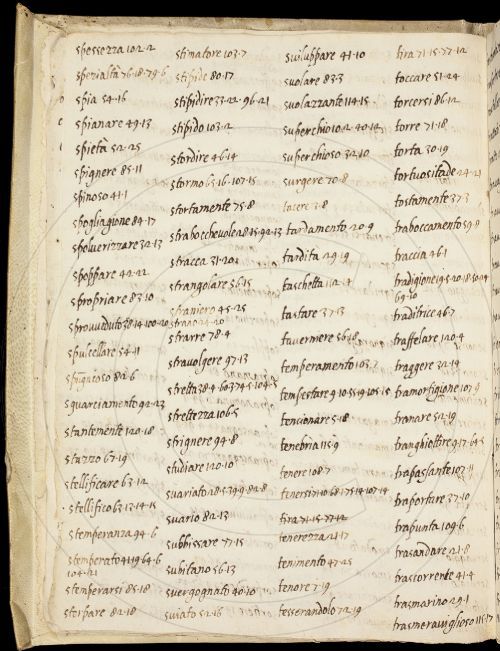 spessezza 102·2
spezialtà 76·18·79·6
spia 54·16
spianare 49·13
spietà 52·25
spignere 85·11
spinoso 41·1
spogliagione 84·17
spolverizzare 32·13
spoppare 42·22
spropriare 83·10
sprovveduto 38·14·100·20
spulcellare 54·11
82·6
squarciamento 92·23
stantemente 120·18
stuzzo 67·19
stellificare 63·12
stellifico 63·13·14·15
stemperanza 94·6
stemperato 41·19·64·6
104·21
stemperarsi 85·18
storpare 82·18
stimatore 103·7
stipide 80·17
stipidire 33·22·96·21
stipido 103·2
stordire 46·14
stormo 65·16·107·15
stortamente 75·8
strabocchevole 28·15·92·13
stracca 31·20
strangolare 36·15
straniero 45·25
strano 24·20
strarre 78·4
stravolgere 97·13
stretta 38·4·60·3·74·5·104·5
strettezza 106·5
strignere 94·8
studiare 120·10
svariato 28·1·39·9·82·8
svario 82·13
subbissare 77·15
subitano 56·13
svergognato 40·10
sviato 52·16
sviluppare 41·10
svolare 83·3
svolazzante 114·15
superchio 10·2·40·14
superchioso 32·10
surgere 70·8
tacere 3·8
tardamento 20·9
tardità 29·19
taschetta 112·4
tastare 37·13
taverniere 56·18
temperamento 103·7
tempestare 9·10·55·19·105·15
tencionare 5·18
tenebria 115·9
tenere 108·7
tenerissimo 68·17·514·107·14
tira 71·15·77·12
tenerezza 21·17
tenimento 47·25
tenore 7·19
tesserandolo 72·19
tira 71·15·77·12
toccare 51·24
torcersi 86·12
torre 71·18
torta 30·19
tortuositade 24·21
tostamente 37·3
traboccamento 59·8
traccia 46·1
tradigione 19·5·20·18·50·24
69·10
traditrice 46·7
traffelare 120·4
traggere 32·14
tramorfigione 107·9
tranare 52·19
tranghiottire 9·17·64·5
trapassante 107·11
traportare 37·10
trapunta 109·6
trasandare 21·8
trascorrente 41·4
trasmarino 29·1
trasmeraviglioso 115·17